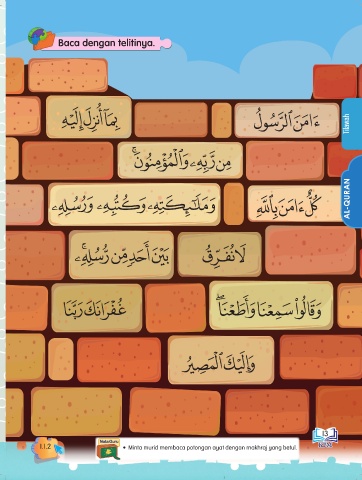 Baca dengan telitinya.
ءَامَنَ ٱلرَّسُولُ بِمَآ أُنزِلَ إِلَيْهِ
مِن رَّبِّهِۦ وَٱلْمُؤْمِنُونَ ۚ
كُلٌّ ءَامَنَ بِٱللَّهِ وَمَلَـٰٓئِكَتِهِۦ وَكُتُبِهِۦ وَرُسُلِهِۦ
لَا نُفَرِّقُ بَيْنَ أَحَدٍ مِّن رُّسُلِهِۦ ۚ
وَقَالُوا۟ سَمِعْنَا وَأَطَعْنَا ۖ غُفْرَانَكَ رَبَّنَا
وَإِلَيْكَ ٱلْمَصِيرُ
Tilawah
AL-QURAN
1.1.2
Nota Guru
• Minta murid membaca potongan ayat dengan makhraj yang betul.
13